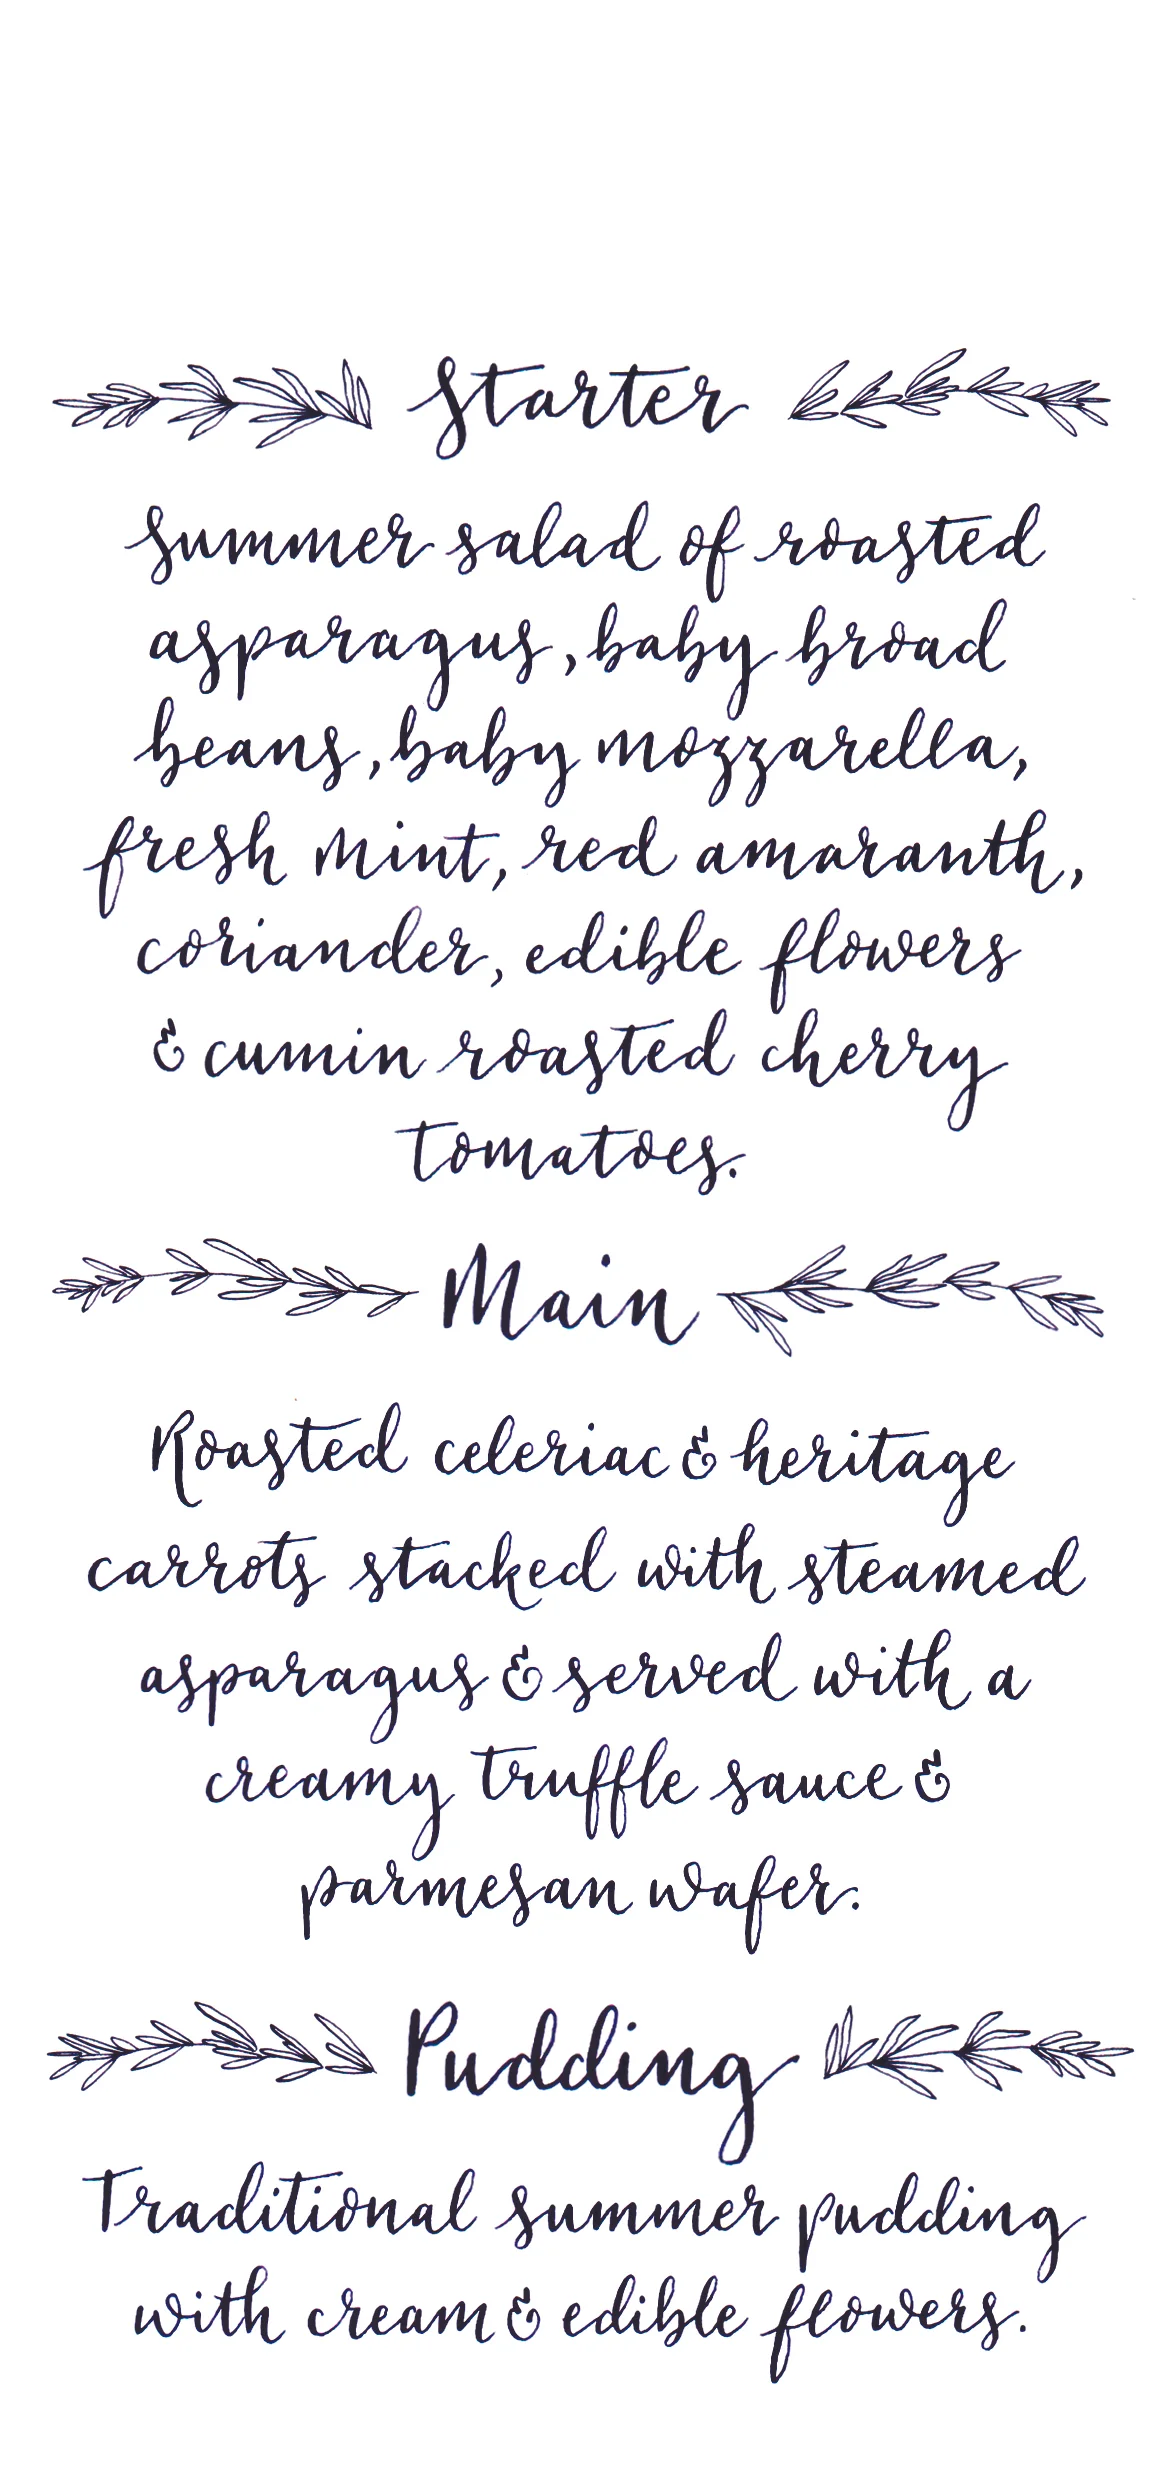 Starter
Summer salad of roasted
asparagus, baby broad
beans, baby mozzarella,
fresh mint, red amaranth,
coriander, edible flowers
& cumin roasted cherry
tomatoes.
Main
Roasted celeriac & heritage
carrots stacked with steamed
asparagus & served with a
creamy truffle sauce &
parmesan wafer.
Pudding
Traditional summer pudding
with cream & edible flowers.